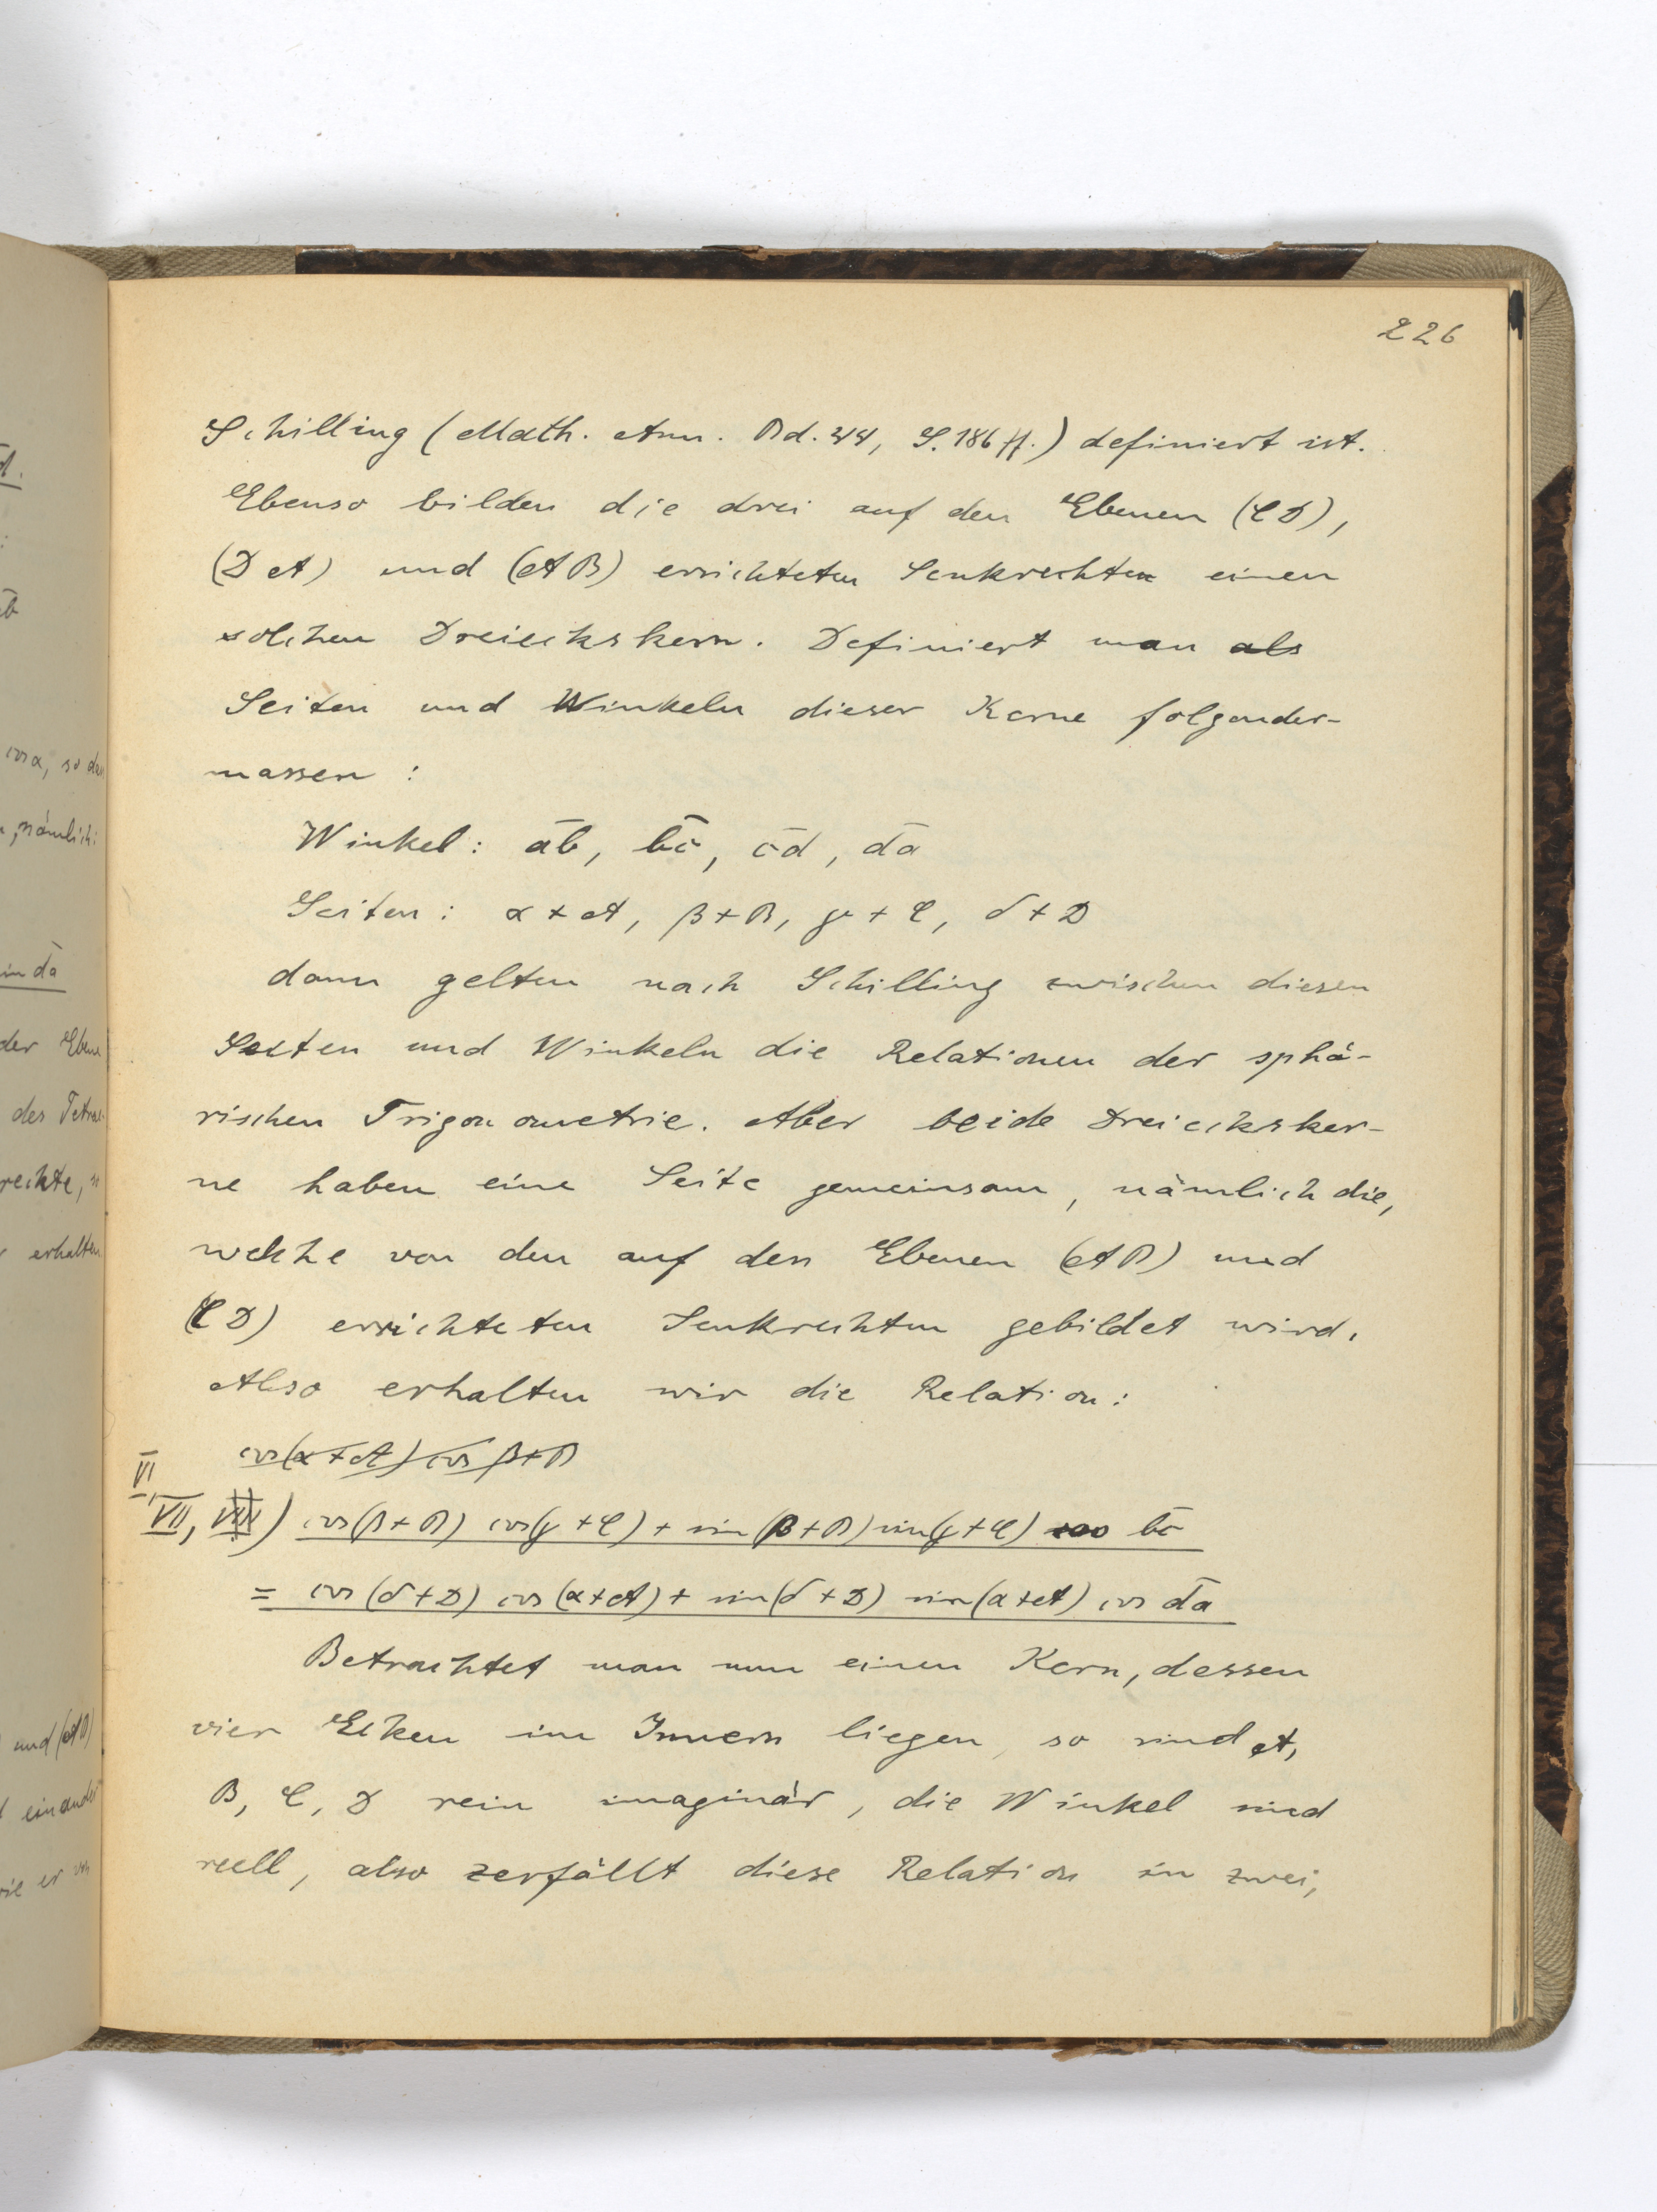 226
Schilling (Math. Ann. Bd. 44, S. 186 ff.) definiert ist.
Ebenso bilden die drei auf den Ebenen (CD),
(DA) und (AB) errichteten Senkrechten einen
solchen Dreieckskern. Definiert man als
Seiten und Winkeln dieser Kerne folgender-
massen :
Winkel: a̅b, b̅c, c̅d, d̅a
Seiten: α + A, β + B, γ + C, δ + D
dann gelten nach Schilling zwischen diesen
Seiten und Winkeln die Relationen der sphä-
rischen Trigonometrie. Aber beide Dreiecksker-
ne haben eine Seite gemeinsam, nämlich die,
welche von den auf den Ebenen (AB) und
(CD) errichteten Senkrechten gebildet wird.
Also erhalten wir die Relation:
cos(α + A) cos β + B
VI,
VII, VIII) cos(β + B) cos(γ + C) + sin(β + B) sin(γ + C) cos b̅c
= cos(δ + D) cos(α + A) + sin(δ + D) sin(α + A) cos d̅a
Betrachtet man nun einen Kern, dessen
vier Ecken im Innern liegen, so sind A,
B, C, D rein imaginär, die Winkel sind
reell, also zerfällt diese Relation in zwei,
cos α, so das
, nämlich:
sin d̅a
der Ebene
des Tetrae-
rechte, 
erhalten
und (AB)
einander
wie er von